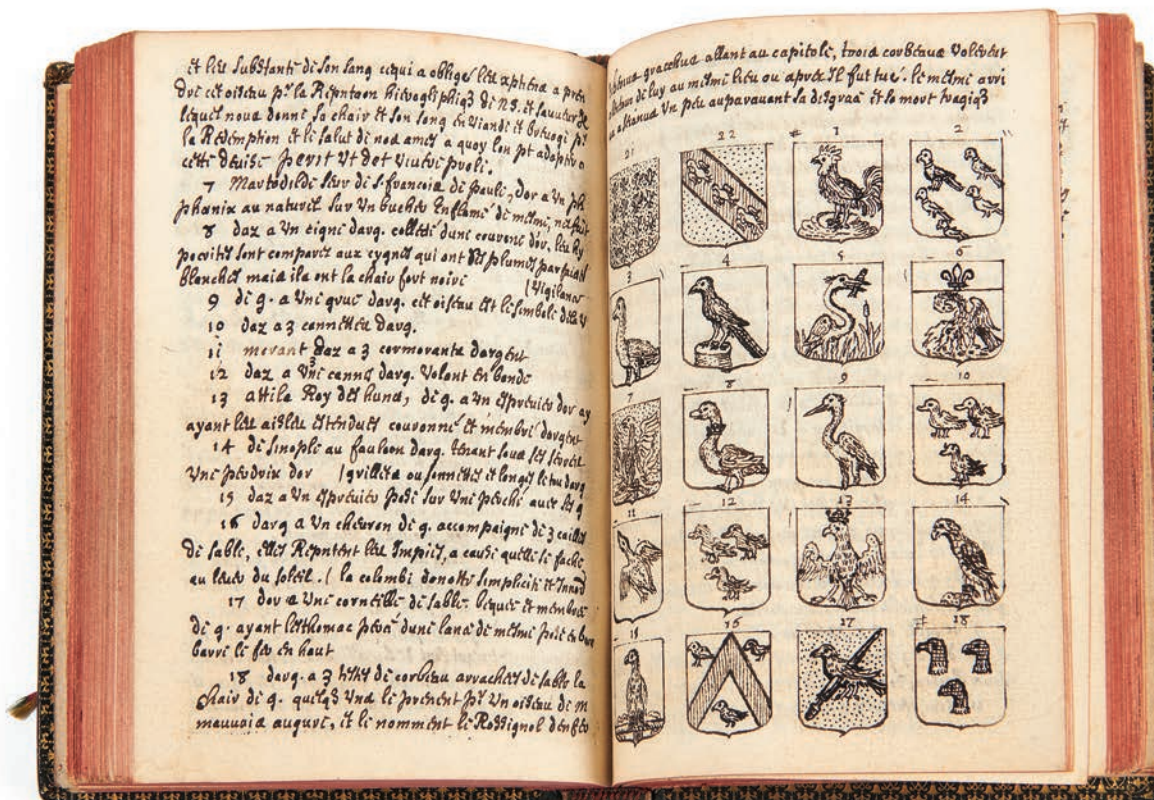 de son sang ce qui a obligé les a pren
dre cet oiseau pr la hieroglifiq de NS. et sauveur
lequel nous donne sa chair et son sang en viande et pr
la Redemption et le salut de nos ames a quoy lon pt
cette devise perit Ut det vivere proli.
7 de Sr francois de paule, dor a Un
phœnix au naturel sur Un bucher Enflamé de mesme,
8 daz a Un cigne darg. colleté dune couronne dor, les hy
pocrites sont comparés aux cygnes qui ont les plumes
blanches mais ils ont la chair fort noire (Vigilance
9 de g. a Une grue darg. cet oiseau est le simbole de la
10 daz a 3 cannettes darg.
11 morant daz a 3 cormorants dargent
12 daz a 3 cannes darg. Volant en bande
13 attila Roy des huns, de g. a Un espreuier dor ay
ayant les aisles estendues couronné et membré dargent
14 de sinople au faulcon darg. tenant sous ses serres
Une perdrix dor | grillets ou sonnettes et longes le tou darg
15 daz a Un espreuier posé sur Une perche avec ses g
16 darg a Un chevron de g. accompagné de 3 cailles
de sable, elles Repntent les Impies, a cause quelle se fache
au lever du soleil. ( la colombe simplicité et
17 dor a Une corneille de sable. bequée et membrée
de g. ayant lesthomac percé dune lance de mesme posée en
barre le fer en haut
18 darg. a 3 testes de corbeau arrachées de sable la
chair de g. quelqs Uns le prenent pr Un oiseau de m
mauvais augure, et le nomment le Rossignol denfer
gracchus allant au capitole, trois corbeaux volerent
de luy au mesme lieu ou apres Il fut tué. le mesme arri
Un peu auparavant sa disgrace et sa mort tragiq
21 22 1 2
3 4 5 6
7 8 9 10
11 12 13 14
15 16 17 18